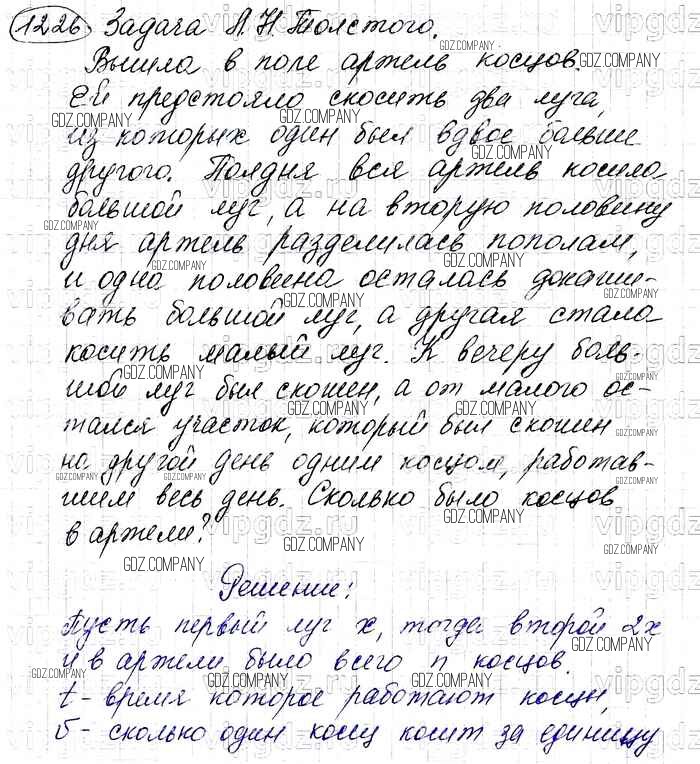 1226 Задача Л.Н.Толстого.
Вышла в поле артель косцов.
Ей предстояло скосить два луга,
из которых один был вдвое больше
другого. Полдня вся артель косила
большой луг, а на вторую половину
дня артель разделилась пополам,
и одна половина осталась докаши-
вать большой луг, а другая стала
косить малый луг. К вечеру боль-
шой луг был скошен, а от малого ос-
тался участок, который был скошен
на другой день одним косцом, работав-
шим весь день. Сколько было косцов
в артели?
Решение:
Пусть первый луг x, тогда второй 2x
и в артели было всего n косцов.
t - время которое работают косцы,
σ - сколько один косец косит за единицу